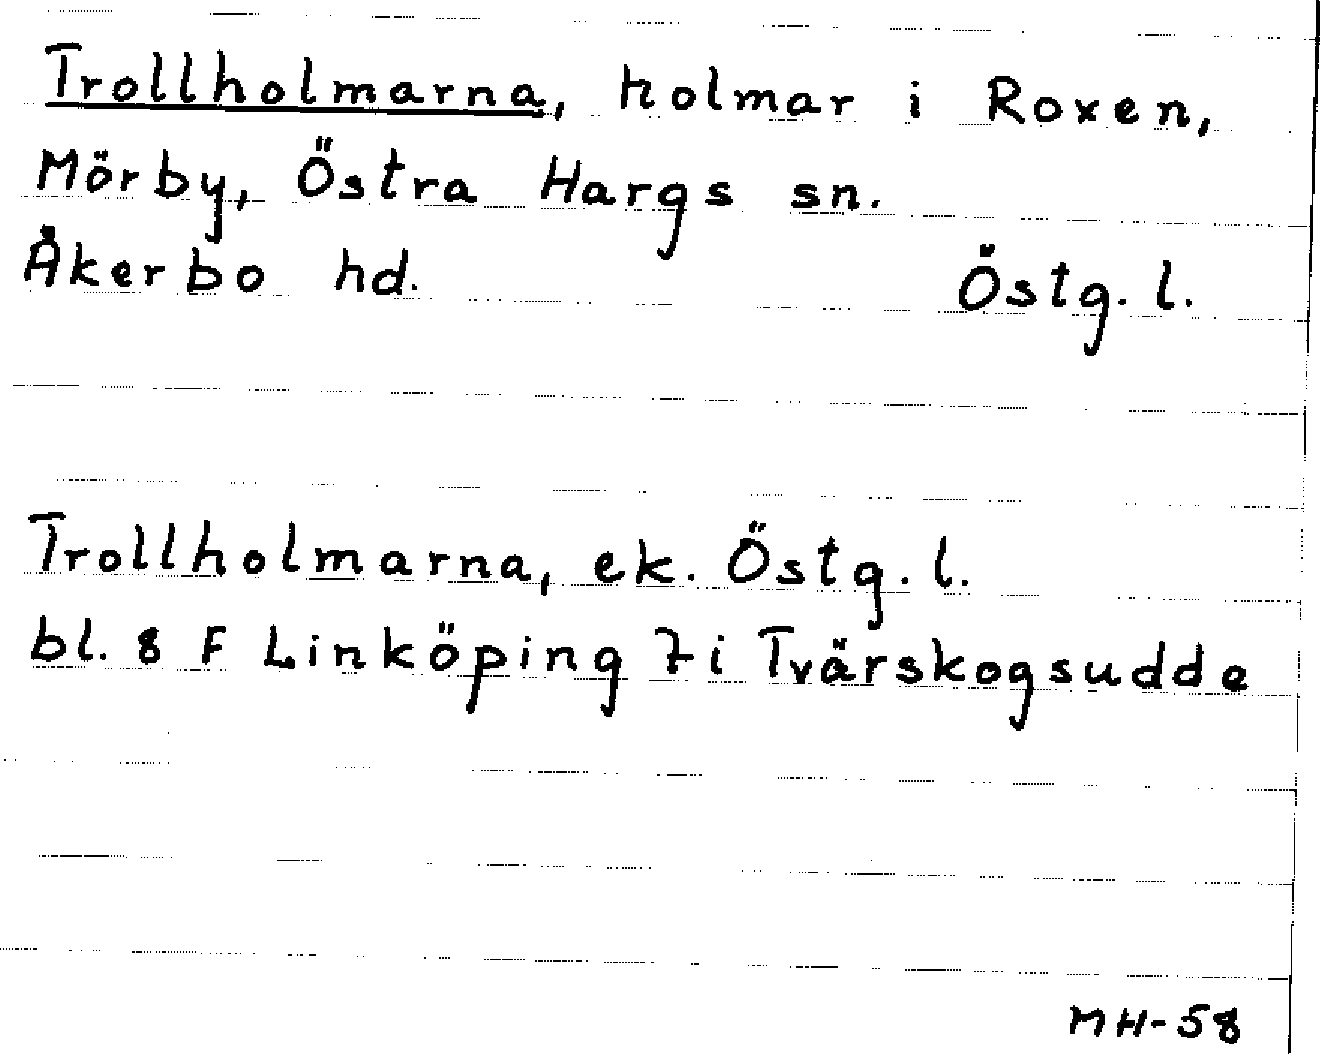 Trollholmarna, holmar i Roxen,
Mörby, Östra Hargs sn.
Åkerbo hd. Östg. l.
Trollholmarna, ek. Östg. l.
bl. 8 F Linköping 7i Tvärskogsudde
MH-58